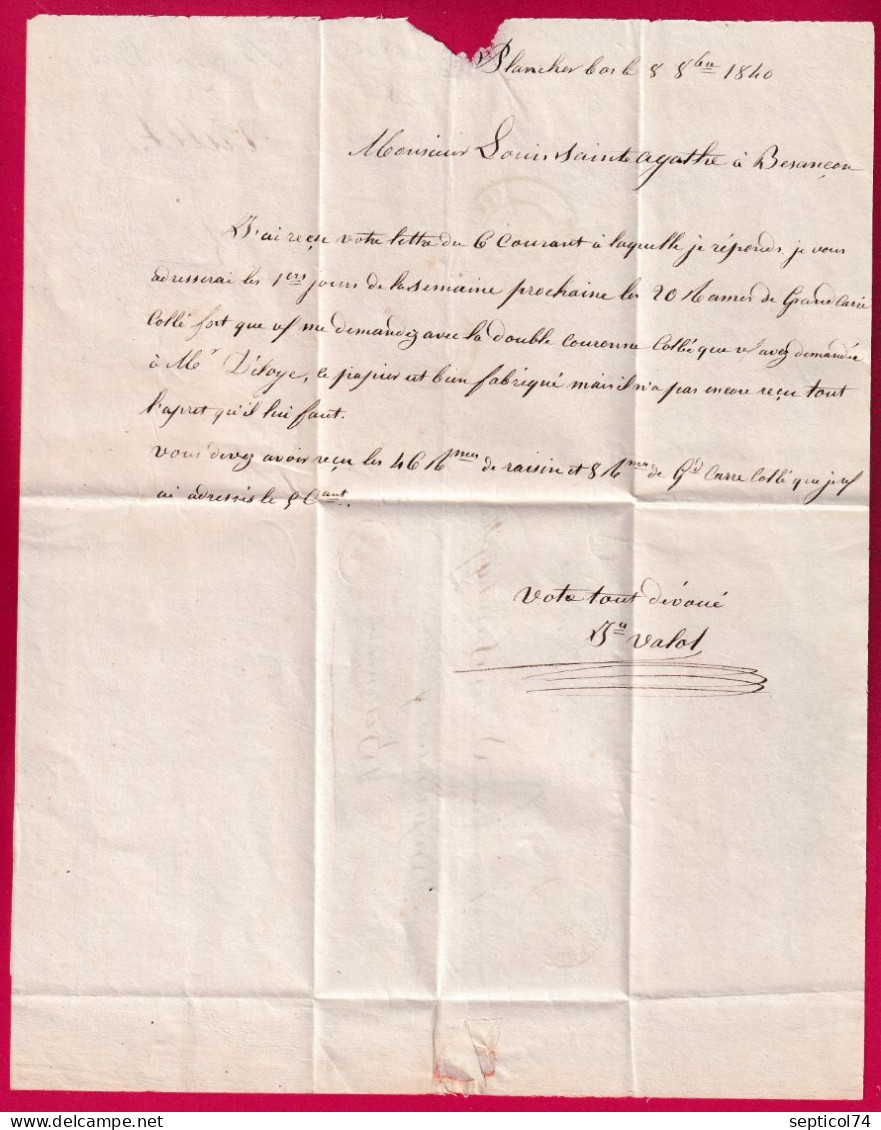 Plancher bas le 8 8bre 1840
Monsieur Louis Sainte agathe à Besançon
J'ai reçu votre lettre du 6 Courant à laquelle je réponds, je vous
adresserai les 1ers jours de la semaine prochaine les 20 Rames de Grand Carré
Collé fort que vs me demandez avec la double couronne Collé que vs avez demandée
à Mr Déloye, le papier est bien fabriqué mais il n'a pas encore reçu tout
l'apret qu'il lui faut.
Vous devez avoir reçu les 46 Rmes de raisin et 8 Rmes de Gd Carre Collé que je vs
ai adressés le 5 Cant.
Votre tout dévoué
Valot
delcampe.net
septicol74